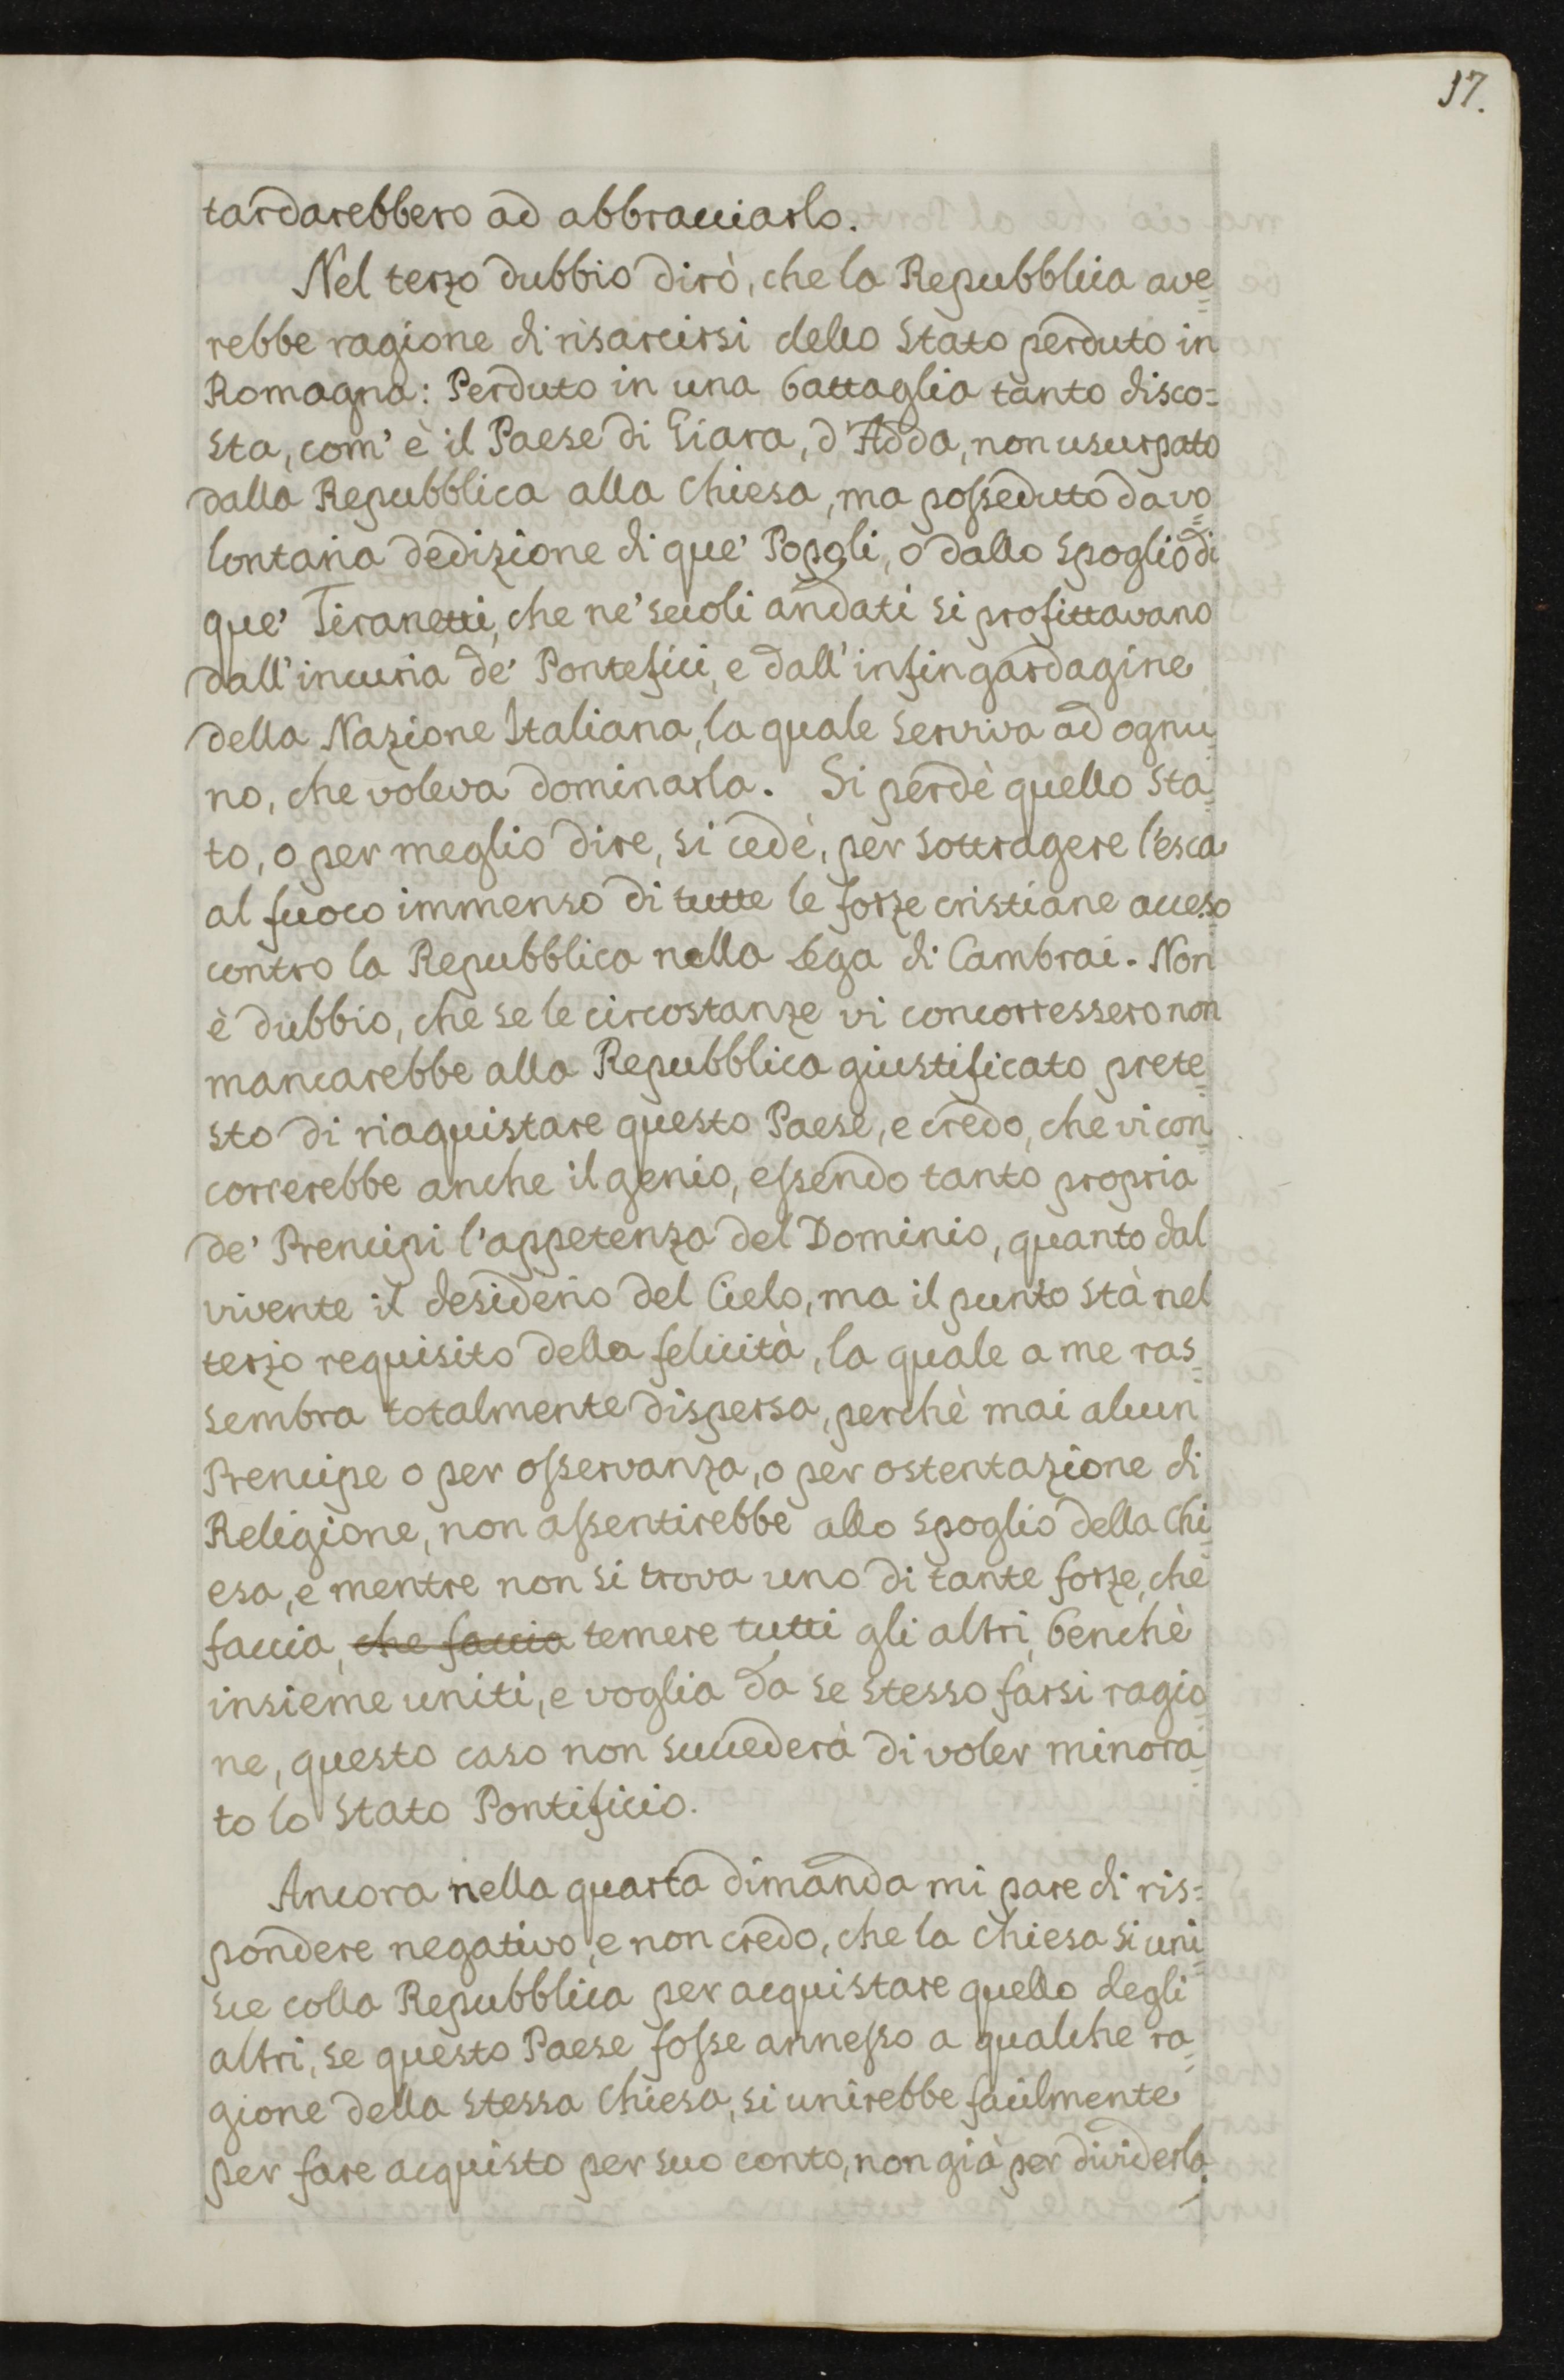 17.
tardarebbero ad abbracciarlo.
Nel terzo dubbio dirò, che la Repubblica ave=
rebbe ragione di risarcirsi dello Stato perduto in
Romagna: Perduto in una battaglia tanto disco=
sta, com' è il Paese di Giara, d'Adda, non usurpato
dalla Repubblica alla Chiesa, ma posseduto da vo=
lontaria dedizione di que' Popoli, o dallo spoglio di
que' Tiranetti, che ne' secoli andati si profittavano
dall'incuria de' Pontefici, e dall'infingardagine
della Nazione Italiana, la quale serviva ad ognu=
no, che voleva dominarla. Si perdè quello Sta=
to, o per meglio dire, si cedè, per sottragere l'esca
al fuoco immenso di tutte le forze cristiane acceso
contro la Repubblica nella Lega di Cambrai. Non
è dubbio, che se le circostanze vi concorressero non
mancarebbe alla Repubblica giustificato prete=
sto di riaquistare questo Paese, e credo, che vi con=
correrebbe anche il genio, essendo tanto propria
de' Prencipi l'appetenza del Dominio, quanto dal
vivente il desiderio del Cielo, ma il punto stà nel
terzo requisito della felicità, la quale a me ras=
sembra totalmente dispersa, perchè mai alcun
Prencipe o per osservanza, o per ostentazione di
Religione, non assentirebbe allo spoglio della Chi=
esa, e mentre non si trova uno di tante forze, che
faccia, che faccia temere tutti gli altri, benchè
insieme uniti, e voglia da se stesso farsi ragio=
ne, questo caso non succederà di voler minora=
to lo Stato Pontificio.
Ancora nella quarta dimanda mi pare di ris=
pondere negativo, e non credo, che la Chiesa si uni=
sce colla Repubblica per acquistare quello degli
altri, se questo Paese fosse annesso a qualche ra=
gione della stessa Chiesa, si unirebbe facilmente
per fare acquisto per suo conto, non già per dividerla;